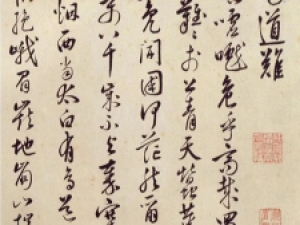 道難
吁嚱危乎高哉蜀
難於上青天蠶叢
鳧開國何茫然爾
萬八千歲不與秦塞
烟西當太白有鳥道
絕峨眉巔地崩山摧